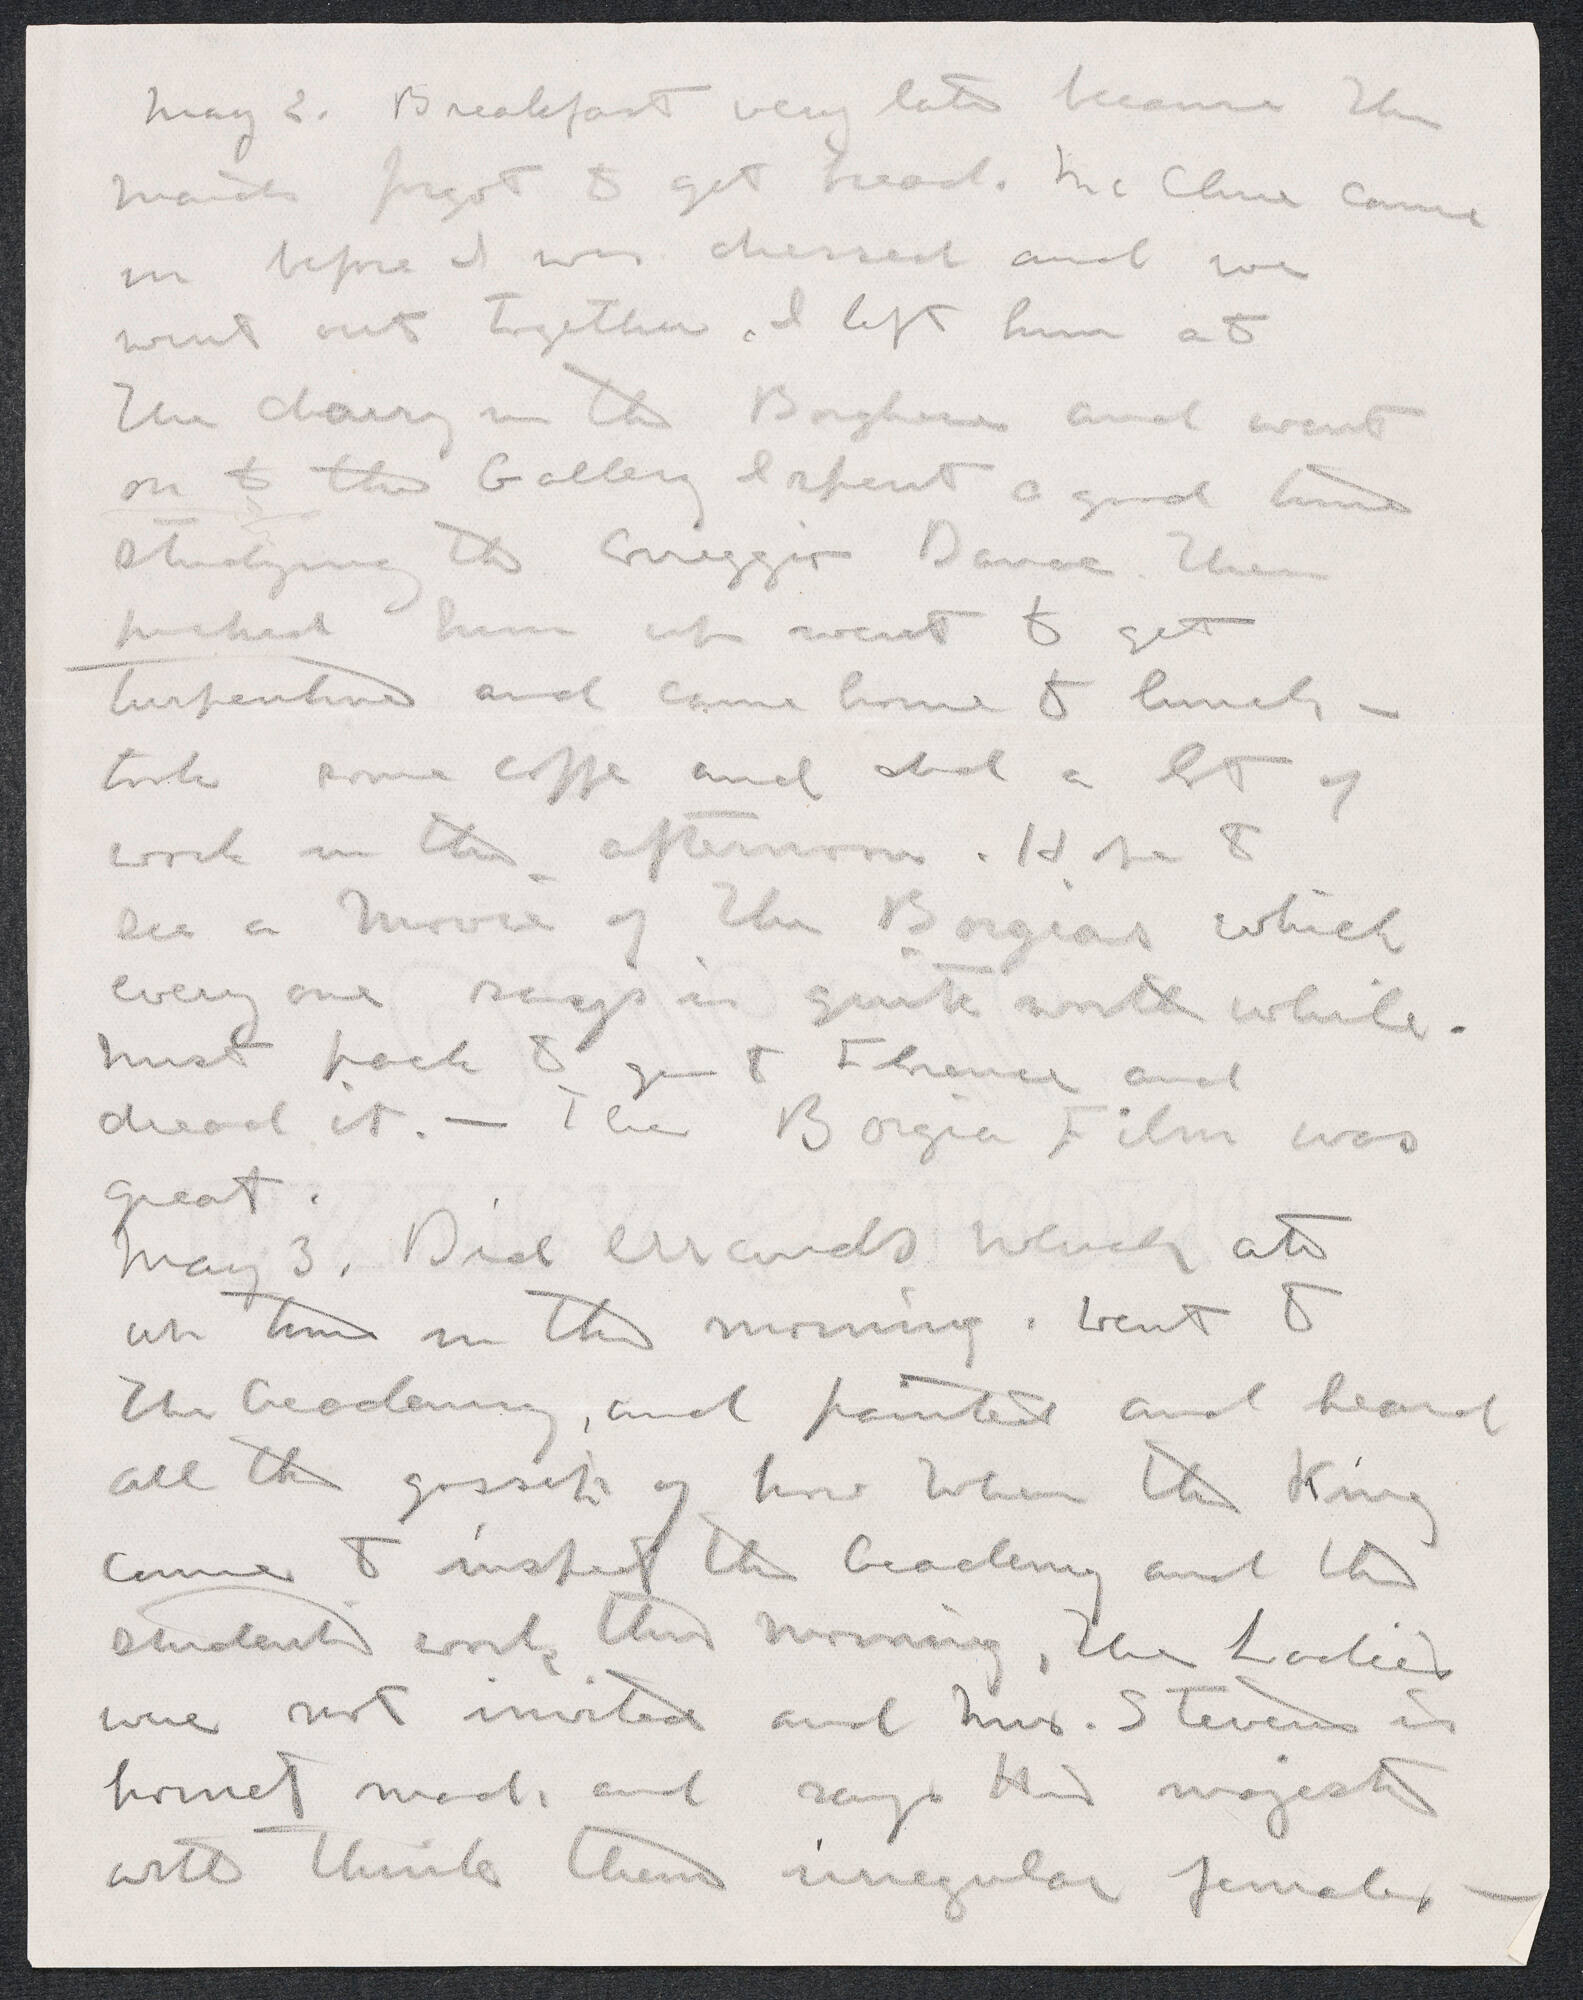 May 2. Breakfast very late because the
maids forgot to get bread. McClure came
in before I was dressed and we
went out together. I left him at
the dairy in the Borghese and went
on to the Gallery I spent a good time
studying the Correggio Danae. Then
picked him up went to get
turpentine and came home to lunch –
took some coffe and did a lot of
work in the afternoon. Hope to
see a Movie of the Borgias which
every one says is quite worth while.
Must pack to go to Florence and
dread it. – The Borgia Film was
great.
May 3. Did errands which ate
up time in the morning. Went to
the Academy, and painted and heard
all the gossip of how when the King
came to inspect the Academy and the
students work this morning, the Ladies
were not invited and Mrs. Stevens is
hornet mad, and says His majesty
will think them irregular females –